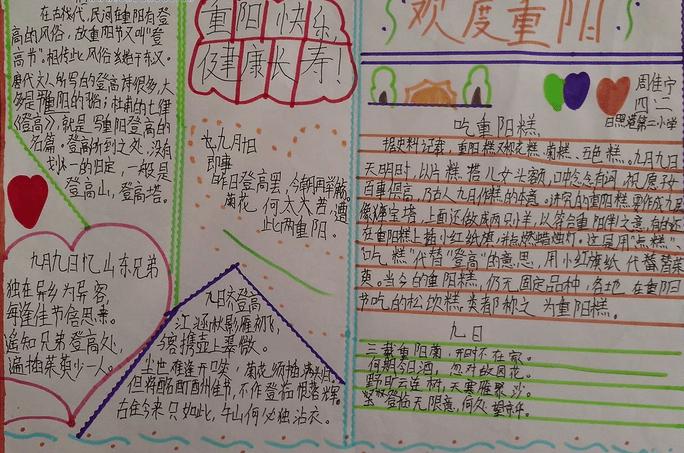 在古代,民间在重阳有登
高的风俗,故重阳节又叫"登
高节"。相传此风俗始于东汉。
唐代文人所写的登高诗很多,大
多是写重阳的习俗;杜甫的七律
《登高》,就是写重阳登高的
名篇。登高所到之处,没有
划一的规定,一般是
登高山,登高塔。
重阳快乐,
健康长寿!
欢度重阳
周佳宁
四二
第二小学
吃重阳糕
据史料记载,重阳糕又称花糕、菊糕、五色糕,九月九日
天明时,以片糕搭儿女头额,口中念念有词,祝愿子
百事俱高,乃古人九月作糕的本意。讲究的重阳糕要作成九层,
像座宝塔,上面还做成两只小羊,以符合重阳(羊)之意。有的还
在重阳糕上插小红纸旗,并点燃蜡烛灯。这是用"点糕"、
"吃糕"代替"登高"的意思,用小红旗纸代替茱
萸。当今的重阳糕,仍无固定品种,各地在重阳
节吃的松软糕类都称之为重阳糕。
九月十日
即事
昨日登高罢,今朝再举觞。
菊花何太苦,遭
此两重阳。
九月九日忆山东兄弟
独在异乡为异客,
每逢佳节倍思亲。
遥知兄弟登高处,
遍插茱萸少一人。
九日齐登高
江涵秋影雁初飞,
客携壶上翠微。
尘世难逢开口笑,菊花须插满头归。
但将酩酊酬佳节,不作登临恨落辉。
古往今来只如此,牛山何必独沾衣。
九日
三载重阳菊,开时不在家。
何期今日酒,忽对故园花。
野旷云连树,天寒雁聚沙。
登临无限意,何处望京华。